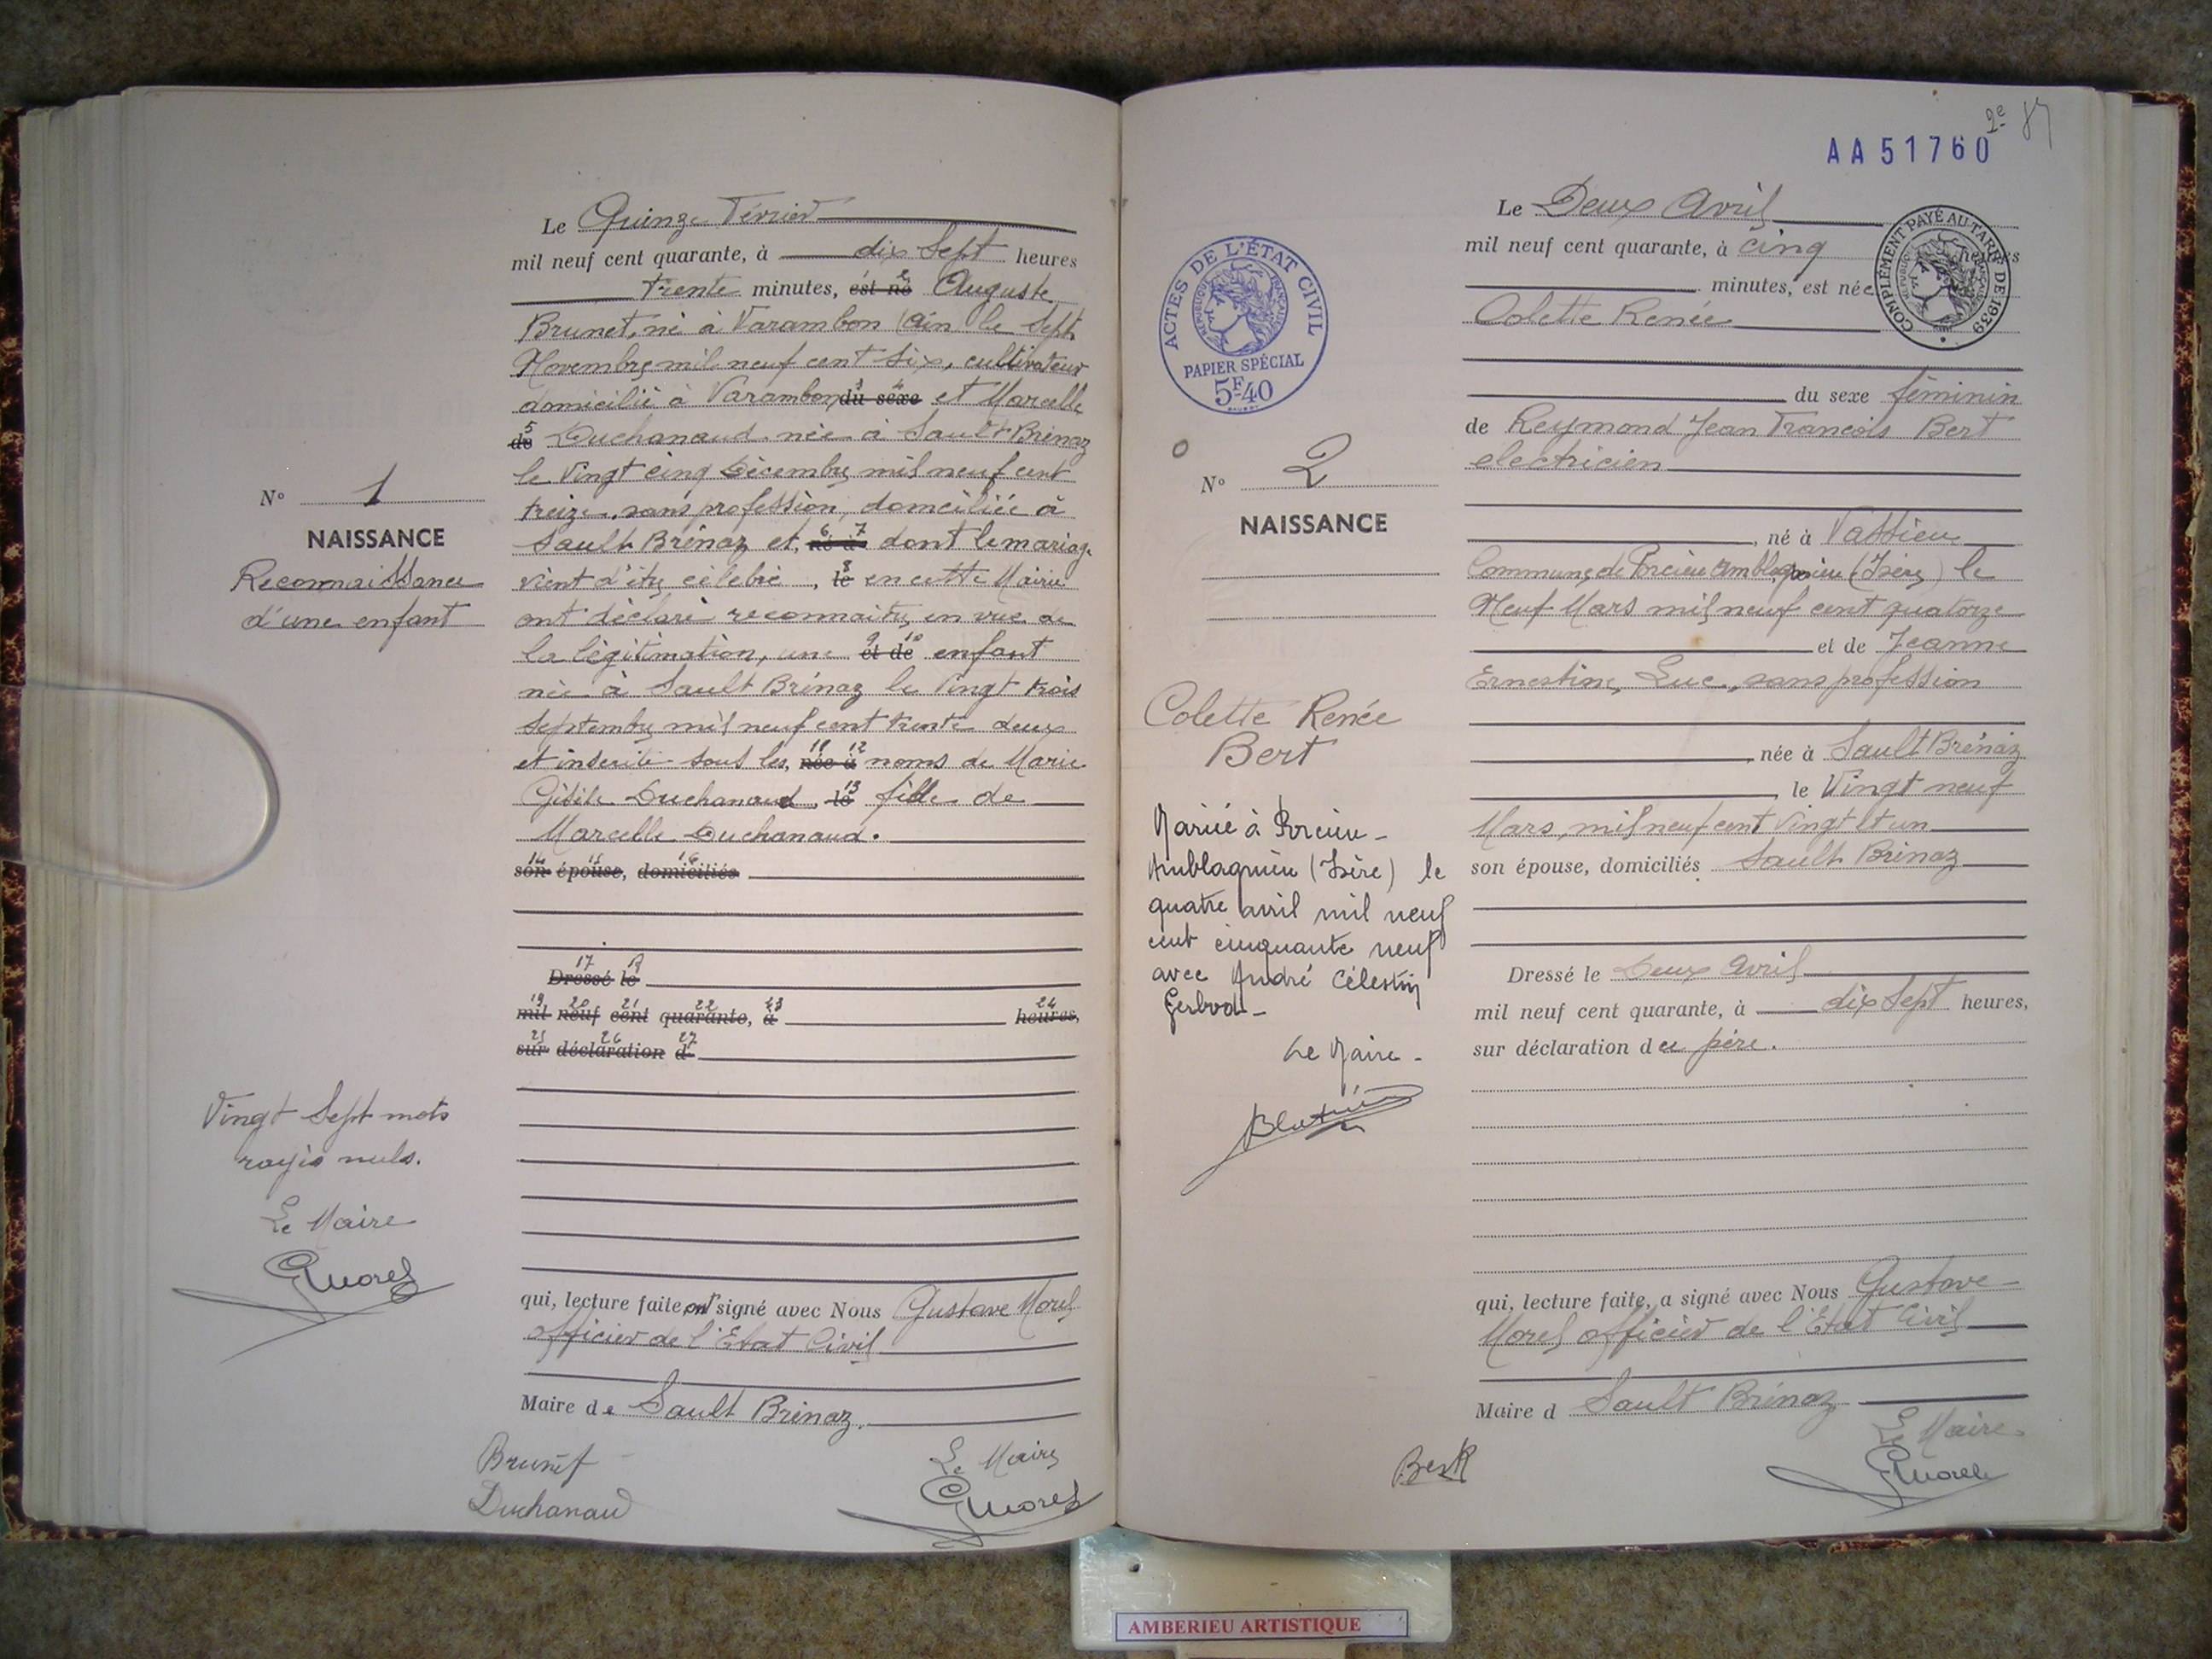 Le Quinze Février
mil neuf cent quarante, à dix sept heures
trente minutes, est né Auguste
Brunet, né à Varambon (Ain le Sept
Novembre mil neuf cent six, cultivateur
domicilié à Varambon, du sexe et Marcelle
de Duchanaud née à Sault Brénaz
le vingt cinq Décembre mil neuf cent
treize, sans profession, domiciliée à
Sault Brénaz et, né à dont le mariage
vient d'être célébré, le en cette Mairie
ont déclaré reconnaitre en vue de
la légitimation, une et de enfant
née à Sault Brénaz le vingt trois
Septembre mil neuf cent trente deux
et inscrite sous les, née à noms de Marie
Gisèle Duchanaud, le fille de
Marcelle Duchanaud.
son épouse, domiciliés
Dressé le
mil neuf cent quarante, à heures,
sur déclaration d
qui, lecture faite ont signé avec Nous Gustave Morel
officier de l'Etat Civil
Maire de Sault Brénaz.
Brunet
Duchanaud
Le Maire
GMorel
N° 1
NAISSANCE
Reconnaissance
d'une enfant
Vingt Sept mots
rayés nuls.
Le Maire
GMorel
2e
AA51760
Le Deux Avril
mil neuf cent quarante, à cinq heures
minutes, est née
Colette Renée
du sexe féminin
de Reymond Jean François Bert
electricien
, né à Vassieu
Commune de Porcieu Amblagnieu (Isère) le
Neuf Mars mil neuf cent quatorze
et de Jeanne
Ernestine, Luc, sans profession
, née à Sault Brénaz
, le Vingt neuf
Mars, mil neuf cent vingt et un
son épouse, domiciliés Sault Brénaz
Dressé le Deux Avril
mil neuf cent quarante, à dix Sept heures,
sur déclaration du père.
qui, lecture faite, a signé avec Nous Gustave
Morel officier de l'Etat Civil
Maire d Sault Brénaz
Le Maire
GMorel
Bert
COMPLÉMENT PAYÉ AU TARIF DE 1939
ACTES DE L'ÉTAT CIVIL
RÉPUBLIQUE FRANÇAISE
PAPIER SPÉCIAL
5F40
N° 2
NAISSANCE
Colette Renée
Bert
Mariée à Porcieu-
Amblagnieu (Isère) le
quatre avril mil neuf
cent cinquante neuf
avec André Célestin
Gerbod-
Le Maire-
AMBERIEU ARTISTIQUE